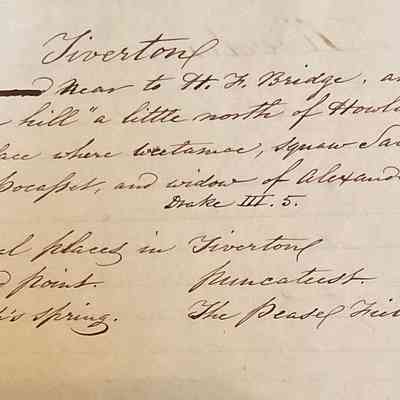 Tiverton
Near to H. F. Bridge, an
hill" a little north of Howl
ace where weetamoe, squaw Sa
pocasset, and widow of Alexand
Drake III. 5.
al places in Tiverton
d point. puncateest.
's spring. The Pease Fi